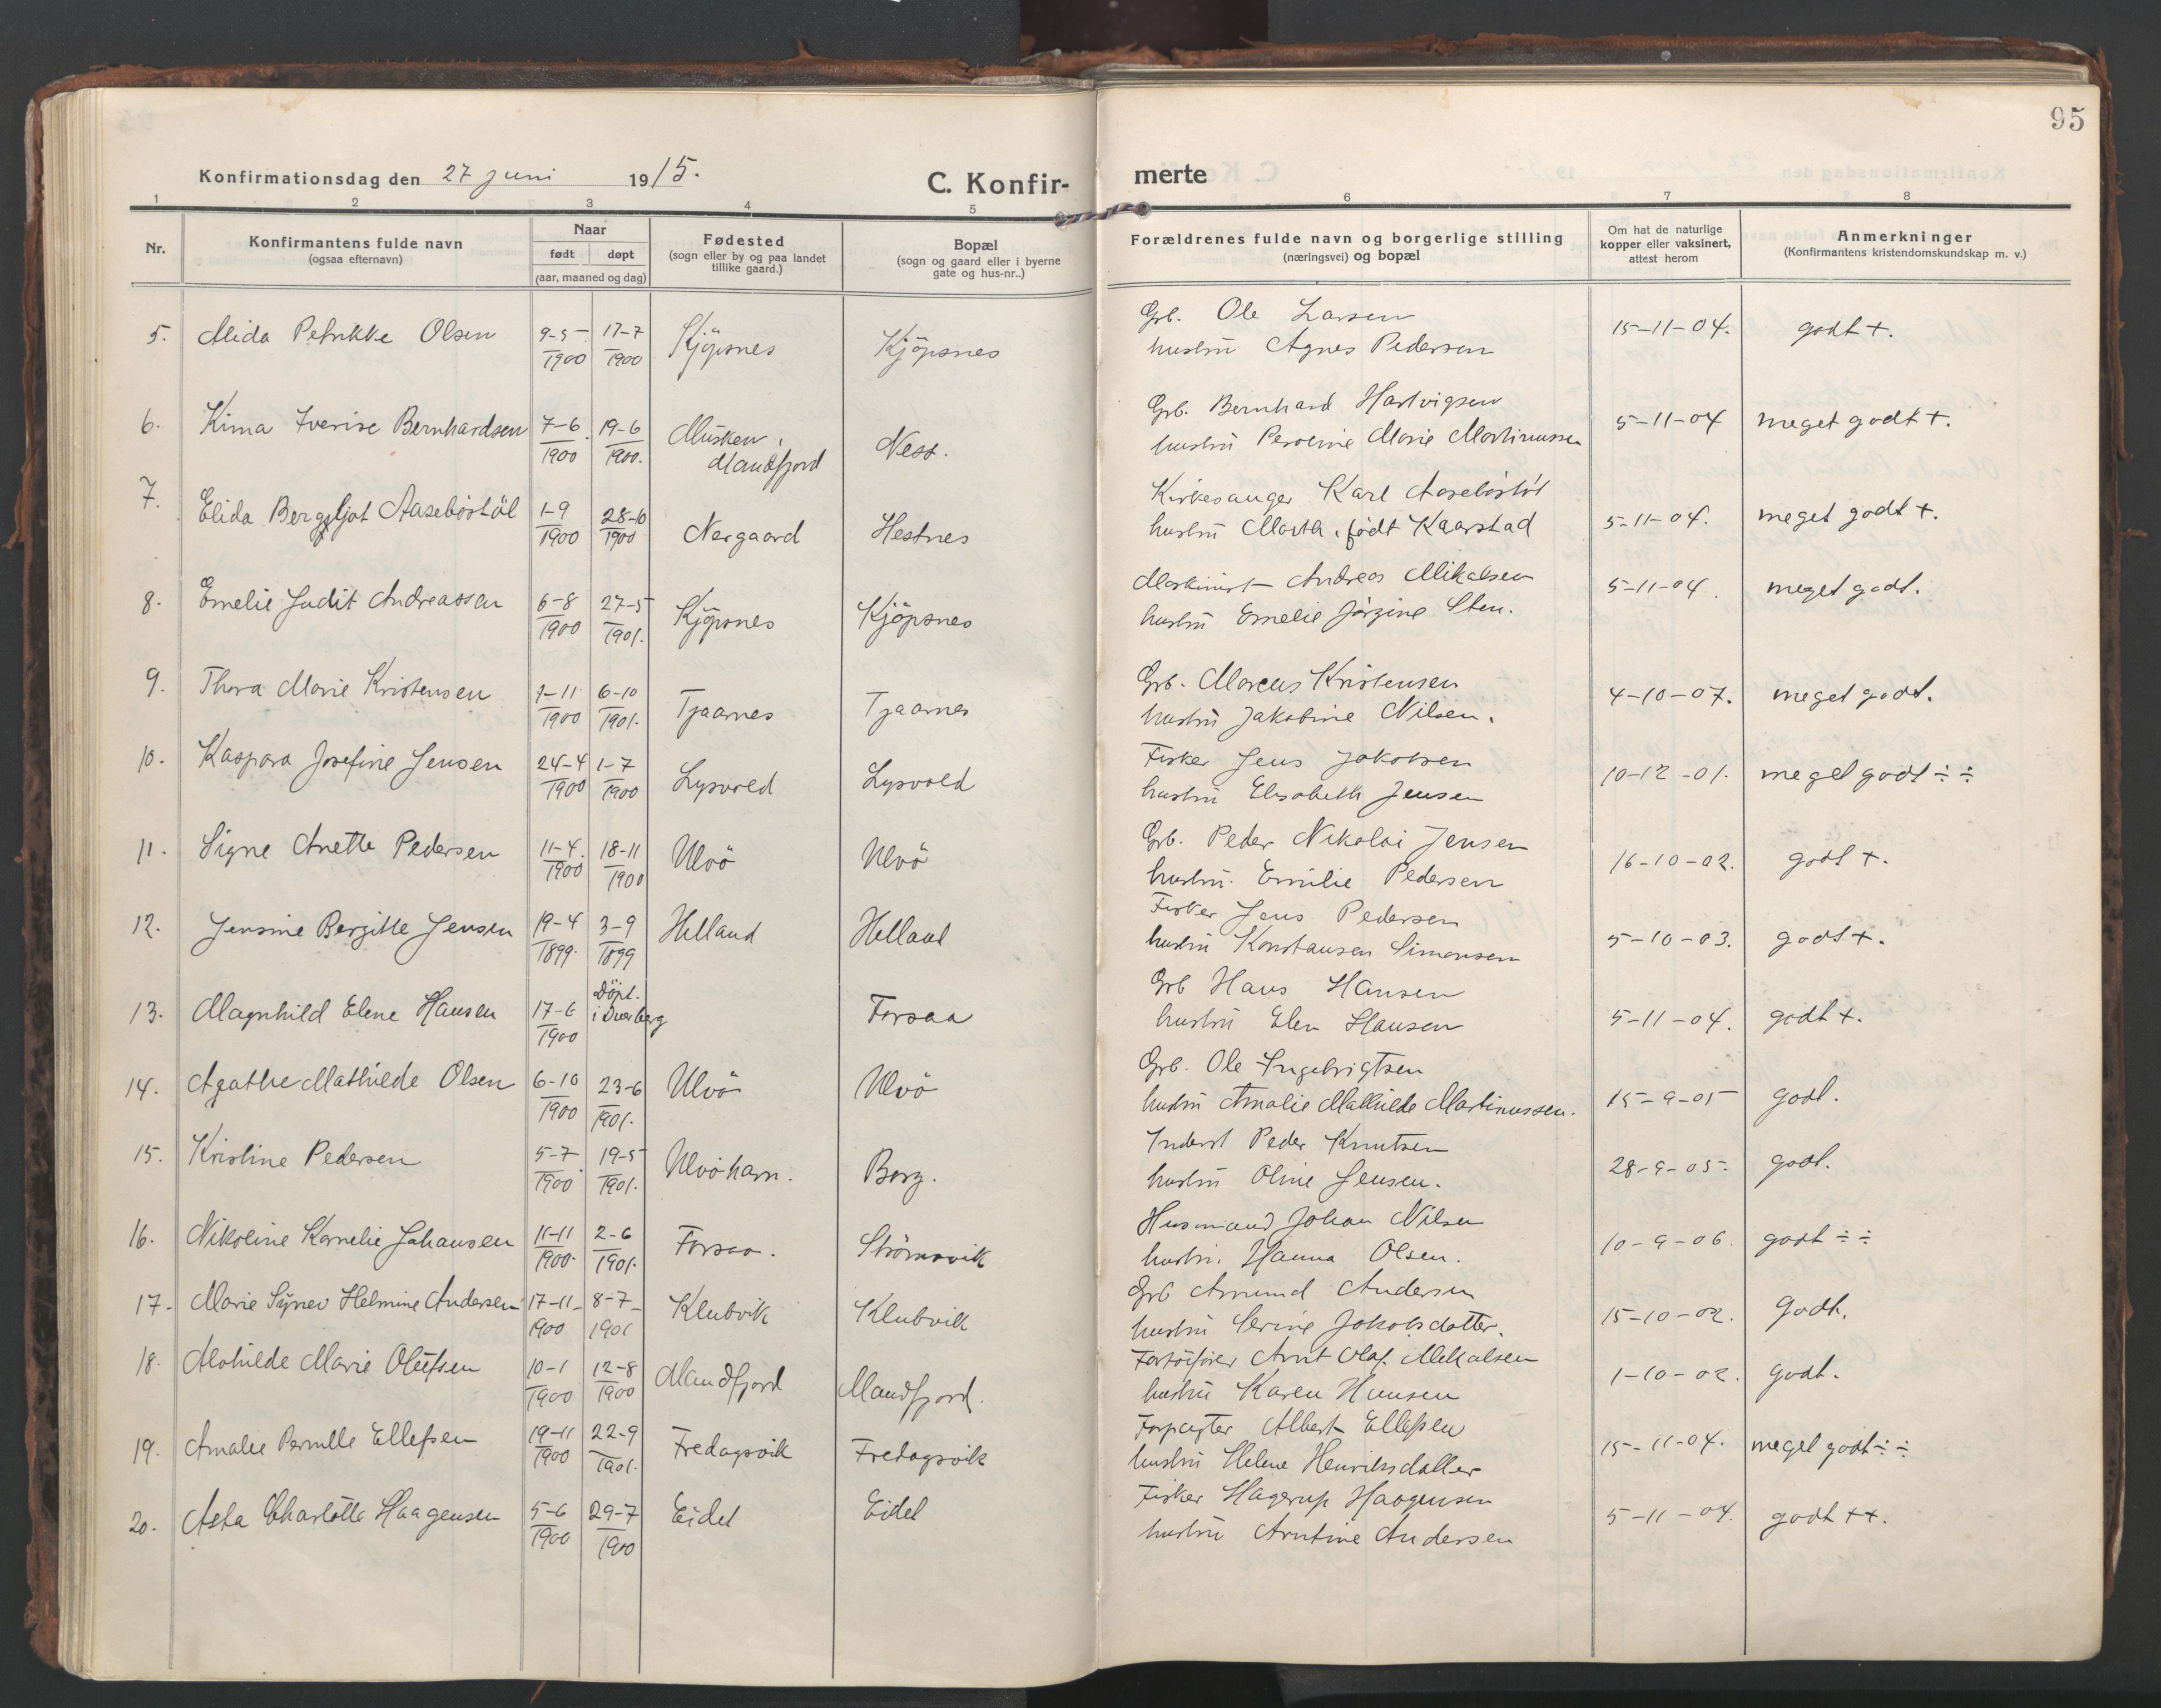 95
Konfirmationsdag den 27 juni 1915.
C. Konfir-
merte
1 2 3 4 5 6 7 8
Nr.
Konfirmantens fulde navn
(ogsaa efternavn)
Naar
født døpt
(aar, maaned og dag)
Fødested
(sogn eller by og paa landet
tillike gaard.)
Bopæl
(sogn og gaard eller i byerne
gate og hus-nr..)
Forældrenes fulde navn og borgerlige stilling
(næringsvei) og bopæl
Om hat de naturlige
kopper eller vaksinert,
attest herom
Anmerkninger
(Konfirmantens kristendomskundskap m. v.)
5. Alida Petrikke Olsen 9-5 1900 17-7 1900 Kjöpsnes Kjöpsnes
Grb. Ole Larsen
hustru Agnes Pedersen
15-11-04. godt +.
6. Kima Iverise Bernhardsen 7-6 1900 19-6 1900. Musken, Mandfjord Ness.
Grb. Bernhard Hartvigsen
hustru Peroline Marie Martinussen
5-11-04 meget godt +.
7. Elida Bergljot Aasebøstöl 1-9 1900 28-10 1900 Nergaard Hestnes
Kirkesanger Karl Aasebøstöl
hustru Marta, født Kaarstad
5-11-04. meget godt +.
8. Emelie Judit Andreassen 6-8 1900 27-5 1901. Kjöpsnes Kjöpsnes
Maskinist Andreas Mikalsen
hustru Emelie Jörgine Sten.
5-11-04. meget godt.
9. Thora Marie Kristensen 7-11 1900 6-10 1901. Tjaarnes Tjaarnes
Grb. Marcus Kristensen
hustru Jakobine Nilsen.
4-10-07. meget godt.
10. Kaspara Josefine Jensen 24-4 1900 1-7 1900 Lysvold Lysvold
Fisker Jens Jakobsen
hustru Elisabeth Jensen
10-12-01. meget godt ÷ ÷
11. Signe Anette Pedersen 11-4. 1900 18-11 1900 Ulvö Ulvö
Grb. Peder Nikolai Jensen
hustru. Emilie Pedersen
16-10-02. godt +.
12. Jensine Bergitte Jensen 19-4 1899. 3-9 1899 Helland Helland
Fisker Jens Pedersen
hustru Konstansen Simonsen
5-10-03. godt +.
13. Magnhild Elene Hansen 17-6 1900 Döpt. i Dverberg Forsaa
Grb Hans Hansen
hustru Elen Hansen
5-11-04. godt +.
14. Agathe Mathilde Olsen 6-10 1900 23-6 1901. Ulvö Ulvö
Grb. Ole Ingebrigtsen
hustru Amalie Mathilde Martinussen.
15-9-05 godt.
15. Kristine Pedersen 5-7 1900 19-5 1901. Ulvöhavn. Borg.
Inderst Peder Knutsen
hustru Oline Jensen.
28-9-05. godt.
16. Nikoline Kornelie Johansen 11-11 1900. 2-6 1901. Forsaa. Strömsvik
Husmand Johan Nilsen
hustru. Hanna Olsen.
10-9-06. godt ÷ ÷
17. Marie Synev Helmine Andersen 17-11- 1900 8-7- 1901 Klubvik Klubvik
Grb Amund Andersen
hustru Serine Jakobsdatter.
15-10-02. Godt.
18. Mathilde Marie Olufsen 10-1 1900 12-8 1900 Mandfjord Mandfjord.
Fartöifører Arnt Olaf Mikalsen
hustru Karen Hansen
1-10-02. godt.
19. Amalie Pernille Ellefsen 19-11 1900 22-9 1901. Fredagsvik Fredagsvik
Forpagter Albert Ellefsen
hustru Helene Henriksdatter
15-11-04. meget godt ÷ ÷
20. Asta Charlotte Haagensen 5-6 1900 29-7 1900 Eidet Eidet
Fisker Hagerup Haagensen
hustru Arntine Andersen
5-11-04. godt ++.